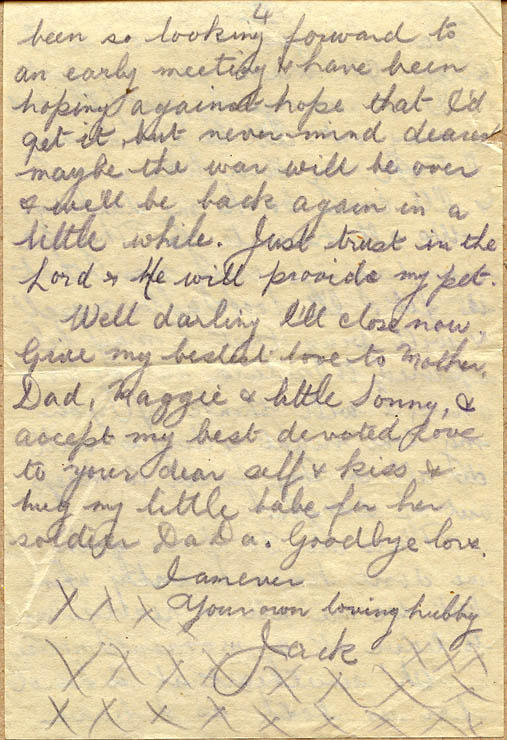 4
been so looking forward to
an early meeting & have been
hoping against hope that I'd
get it, but never mind dearest
maybe the war will be over
& we'll be back again in a
little while. Just trust in the
Lord & He will provide my pet.
Well darling I'll close now.
Give my bestest love to Mother,
Dad, Maggie & little Sonny, &
accept my best devoted love
to your dear self & kiss &
hug my little babe for her
soldier DaDa. Goodbye love.
I am ever
X X X X Your own loving hubby
Jack X X X
X X X X X X X X X
X X X X X X X X X